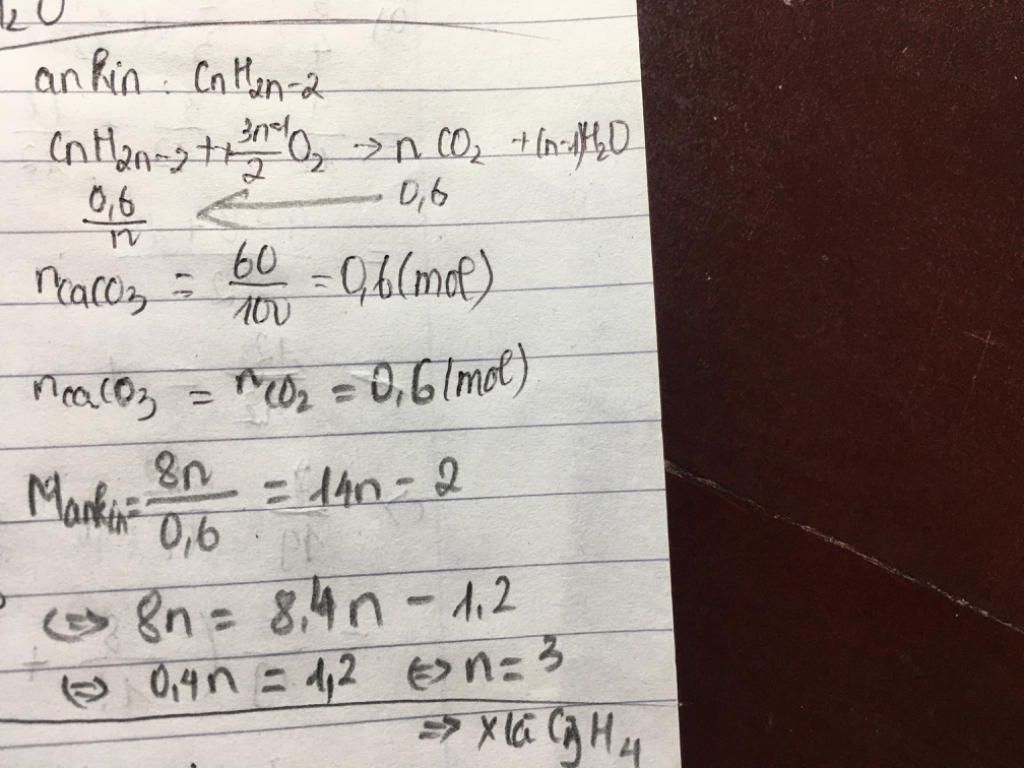 ankin : CnH2n-2
CnH2n-2 + 3n-1/2 O2 → n CO2 + (n-1)H2O
0,6/n ← 0,6
nCaCO3 = 60/100 = 0,6 (mol)
nCaCO3 = nCO2 = 0,6 (mol)
Mankin = 8n/0,6 = 14n - 2
⇔ 8n = 8,4n - 1,2
⇔ 0,4n = 1,2 ⇔ n = 3
⇒ X là C3H4